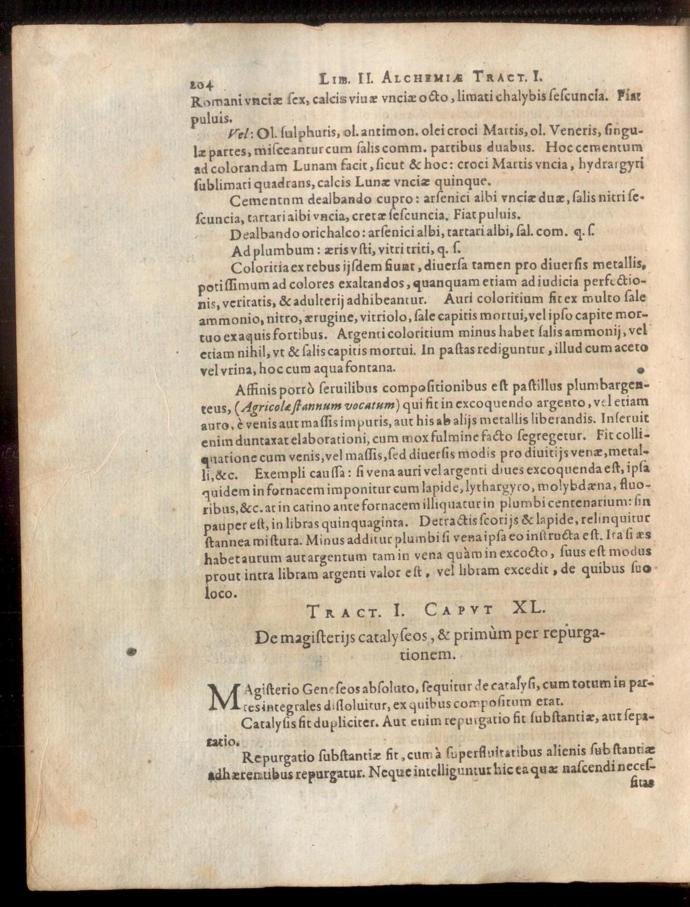 204 LIB. II. ALCHEMIÆ TRACT. I.
Romani vnciæ ſex, calcis viuæ vnciæ octo, limati chalybis ſeſcuncia. Fiat
puluis.
Vel: Ol. ſulphuris, ol. antimon. olei croci Martis, ol. Veneris, ſingu-
læ partes, miſceantur cum ſalis comm. partibus duabus. Hoc cementum
ad colorandam Lunam facit, ſicut & hoc: croci Martis vncia, hydrargyri
ſublimati quadrans, calcis Lunæ vnciæ quinque.
Cementum dealbando cupro: arſenici albi vnciæ duæ, ſalis nitri ſe-
ſcuncia, tartari albi vncia, cretæ ſeſcuncia. Fiat puluis.
Dealbando orichalco: arſenici albi, tartari albi, ſal. com. q. ſ.
Ad plumbum: æris vſti, vitri triti, q. ſ.
Coloritia ex rebus ijſdem fiunt, diuerſa tamen pro diuerſis metallis,
potiſſimum ad colores exaltandos, quanquam etiam ad iudicia perfectio-
nis, veritatis, & adulterij adhibeantur. Auri coloritium fit ex multo ſale
ammonio, nitro, ærugine, vitriolo, ſale capitis mortui, vel ipſo capite mor-
tuo ex aquis fortibus. Argenti coloritium minus habet ſalis ammonij, vel
etiam nihil, vt & ſalis capitis mortui. In paſtas rediguntur, illud cum aceto
vel vrina, hoc cum aqua fontana.
Affinis porrò ſeruilibus compoſitionibus eſt paſtillus plumbargen-
teus, (Agricolæ ſtannum vocatum) qui fit in excoquendo argento, vel etiam
auro, è venis aut maſſis impuris, aut his ab alijs metallis liberandis. Inſeruit
enim duntaxat elaborationi, cum mox fulmine facto ſegregetur. Fit colli-
quatione cum venis, vel maſſis, ſed diuerſis modis pro diuitijs venæ, metal-
li, &c. Exempli cauſſa: ſi vena auri vel argenti diues excoquenda eſt, ipſa
quidem in fornacem imponitur cum lapide, lythargyro, molybdæna, fluo-
ribus, &c. at in catino ante fornacem illiquatur in plumbi centenarium: ſin
pauper eſt, in libras quinquaginta. Detractis ſcorijs & lapide, relinquitur
ſtannea miſtura. Minus additur plumbi ſi vena ipſa eo inſtructa eſt. Ita ſi æs
habet aurum aut argentum tam in vena quàm in excocto, ſuus eſt modus
prout intra libram argenti valor eſt, vel libram excedit, de quibus ſuo
loco.
TRACT. I. CAPVT XL.
De magiſterijs catalyſeos, & primùm per repurga-
tionem.
MAgiſterio Geneſeos abſoluto, ſequitur de catalyſi, cum totum in par-
tes integrales diſſoluitur, ex quibus compoſitum erat.
Catalyſis fit dupliciter. Aut enim repurgatio fit ſubſtantiæ, aut ſepa-
ratio.
Repurgatio ſubſtantiæ fit, cum à ſuperfluitatibus alienis ſubſtantiæ
adhærentibus repurgatur. Neque intelliguntur hic ea quæ naſcendi neceſ-
ſitas